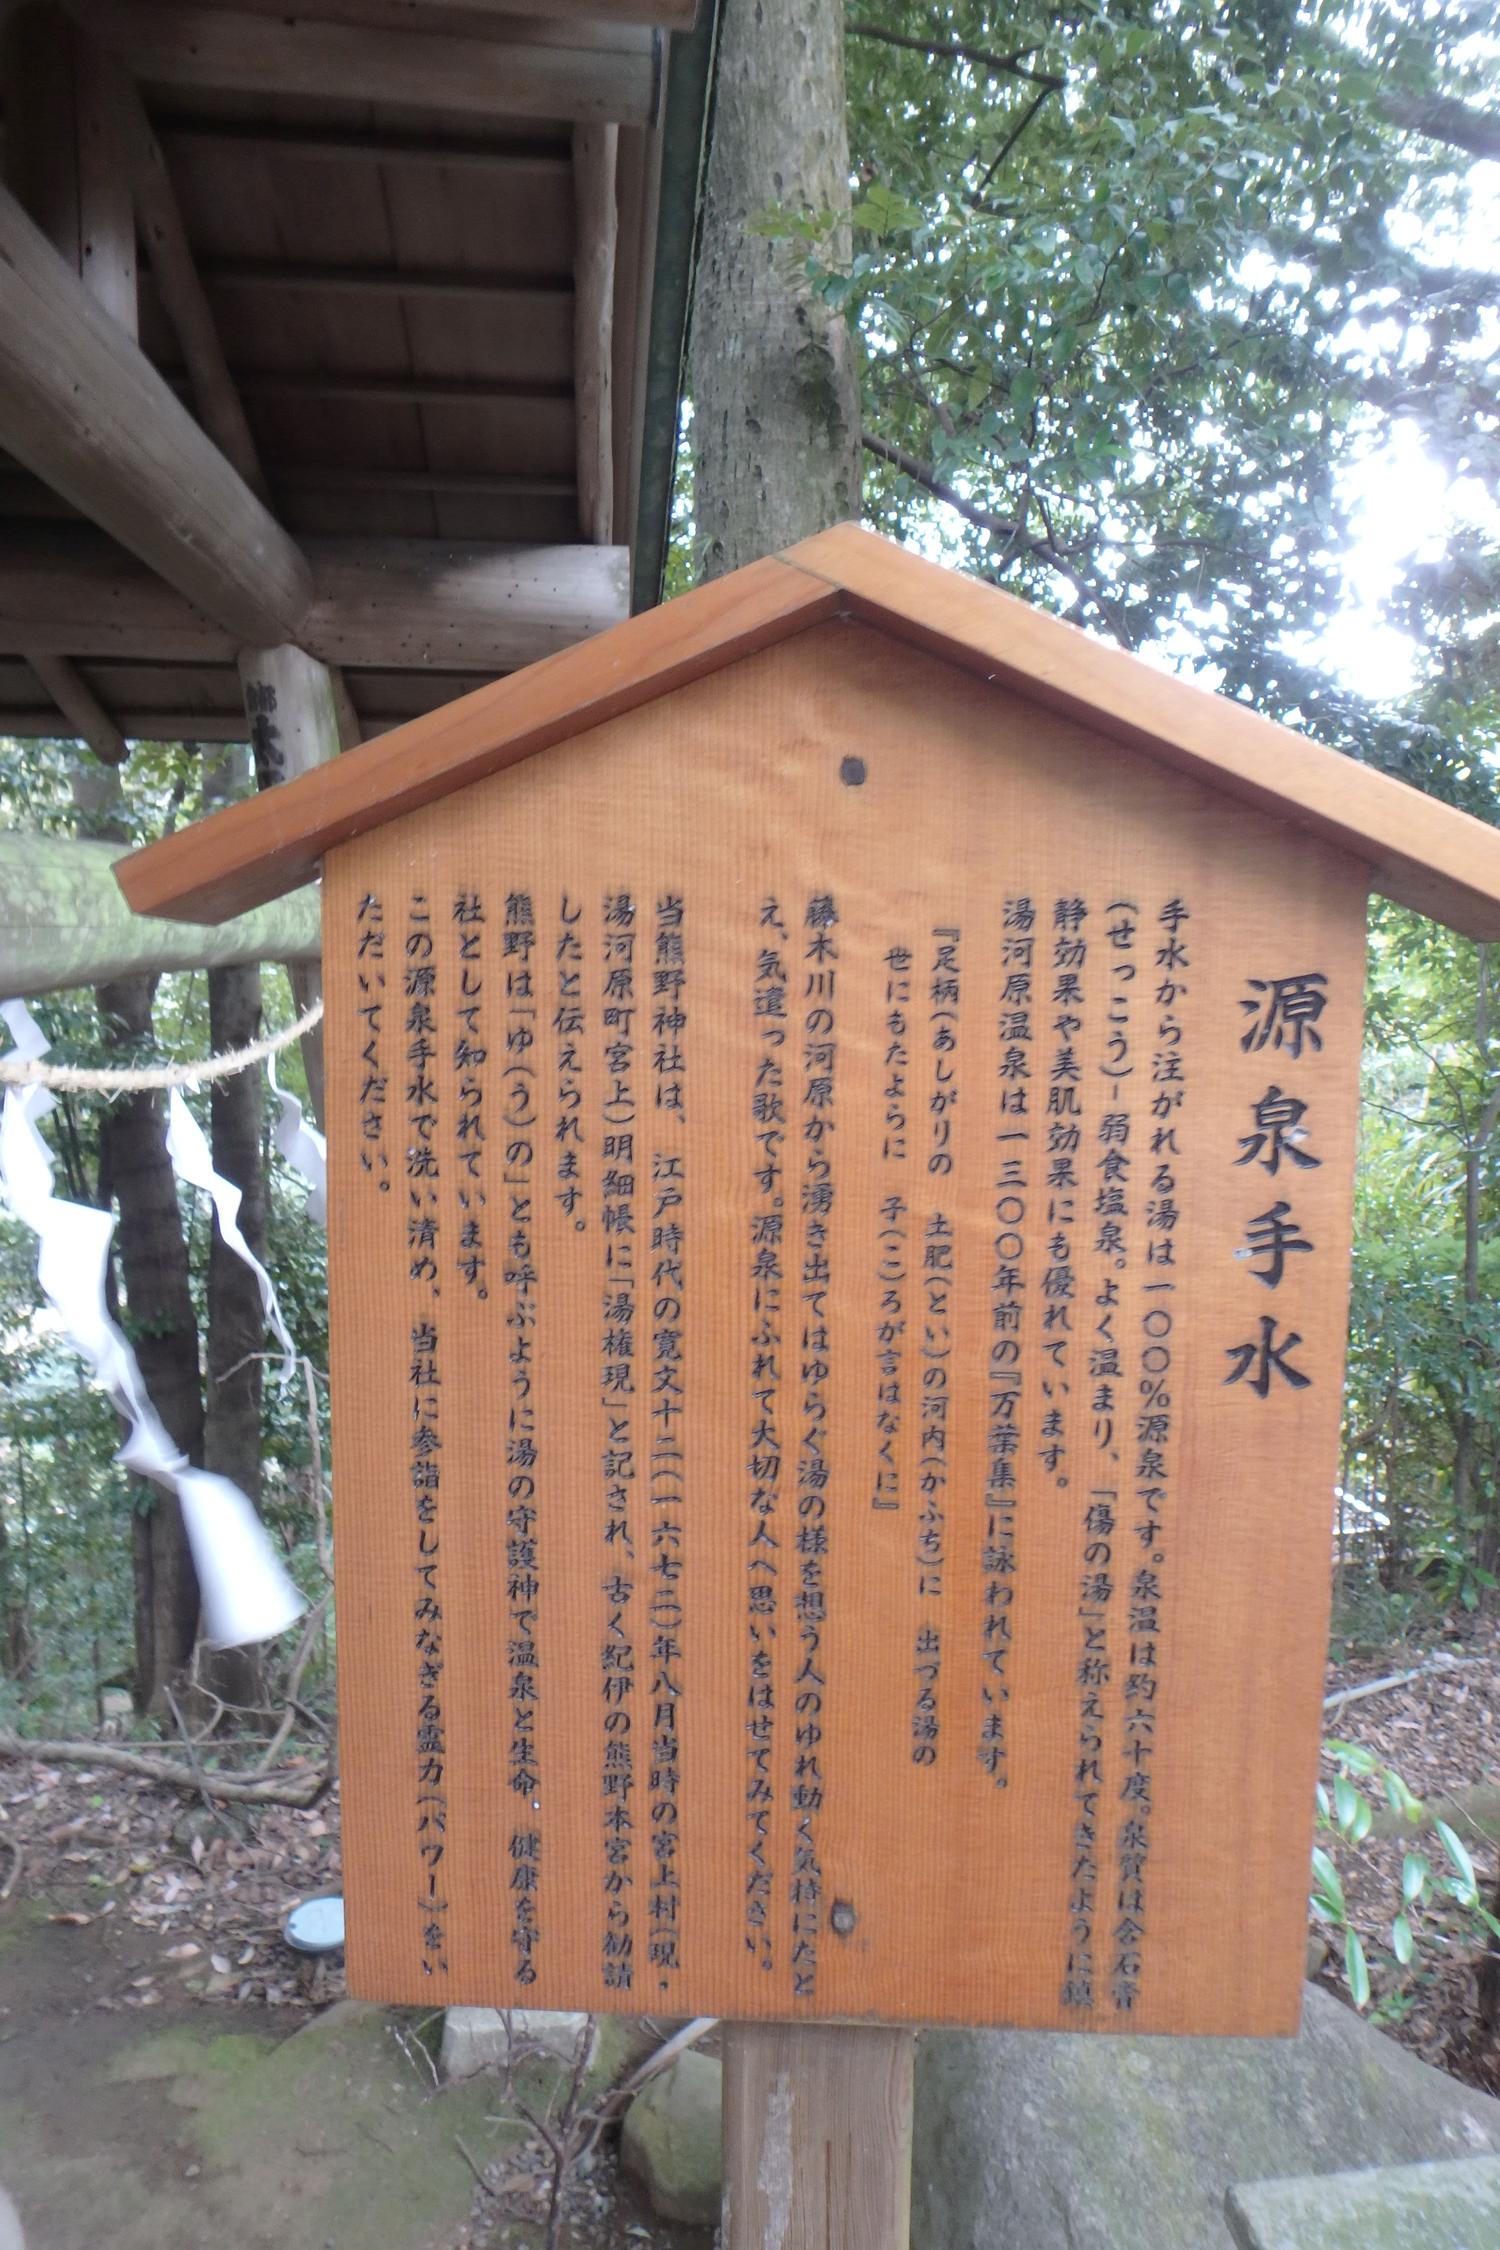 源泉手水
手水から注がれる湯は一〇〇％源泉です。泉温は約六十度。泉質は含石膏
（せっこう）－弱食塩泉。よく温まり、「傷の湯」と称えられてきたように鎮
静効果や美肌効果にも優れています。
湯河原温泉は一三〇〇年前の『万葉集』に詠われています。
『足柄（あしがり）の　土肥（とい）の河内（かふち）に　出づる湯の
世にもたよらに　子（こ）ろが言はなくに』
藤木川の河原から湧き出てはゆらぐ湯の様を想う人のゆれ動く気持にたと
え、気遣った歌です。源泉にふれて大切な人へ思いをはせてみてください。
当熊野神社は、江戸時代の寛文十二（一六七二）年八月当時の宮上村（現・
湯河原町宮上）明細帳に「湯権現」と記され、古く紀伊の熊野本宮から勧請
したと伝えられます。
熊野は「ゆ（う）の」とも呼ぶように湯の守護神で温泉と生命、健康を守る
社として知られています。
この源泉手水で洗い清め、当社に参詣をしてみなぎる霊力（パワー）をい
ただいてください。